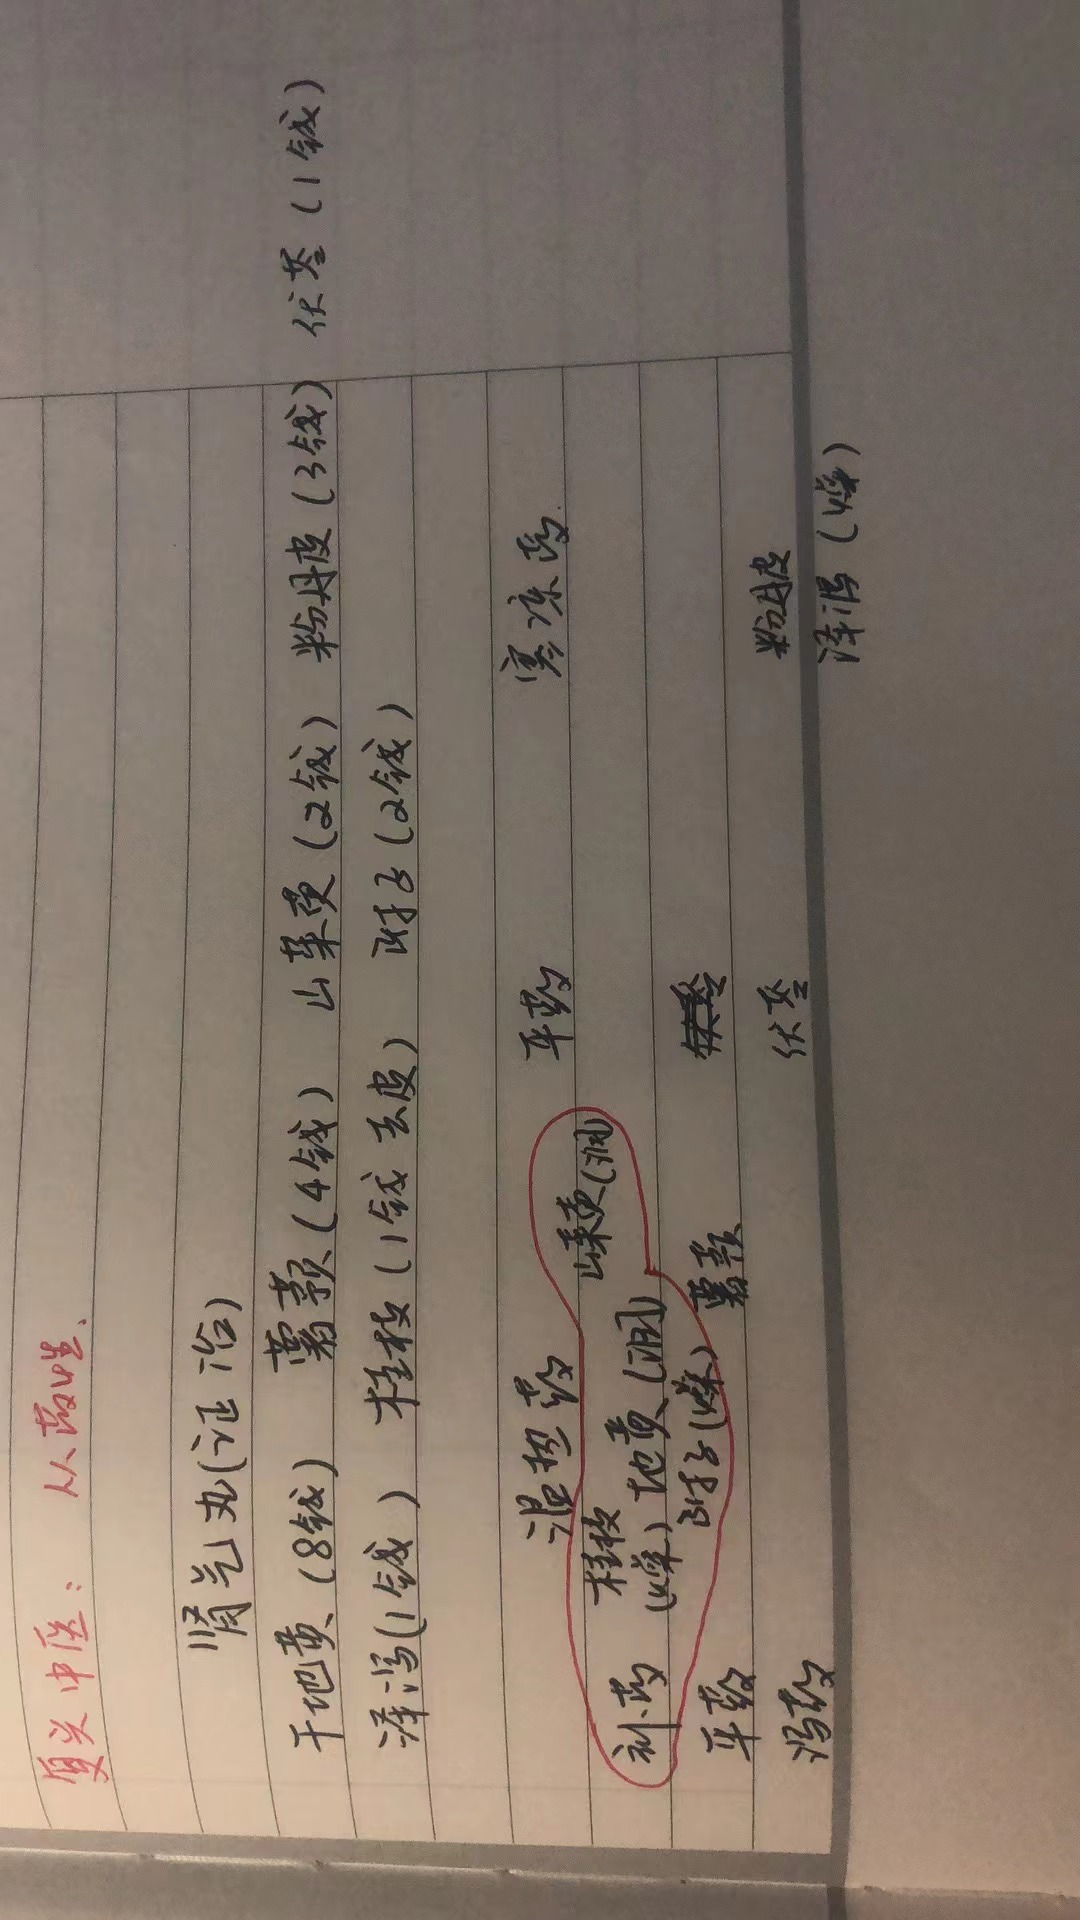 复兴中医： 从药性、
肾气丸(证治)
干地黄(8钱) 薯蓣(4钱) 山茱萸(2钱) 粉丹皮(3钱) 伏苓(1钱)
泽泻(1钱) 桂枝(1钱 去皮) 附子(2钱)
温热药 平药 寒凉药
补药 桂枝(燥) 地黄(润) 山茱萸(润)
附子(燥)
平药 薯蓣
泻药 伏苓 粉丹皮
泽泻(燥)